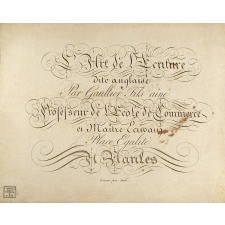 L'Art de l'Ecriture
dite anglaise
Par Gaullier fils ainé
Professeur de l'Ecole de Commerce
et Maître Ecrivain
Place Egalité
A Nantes